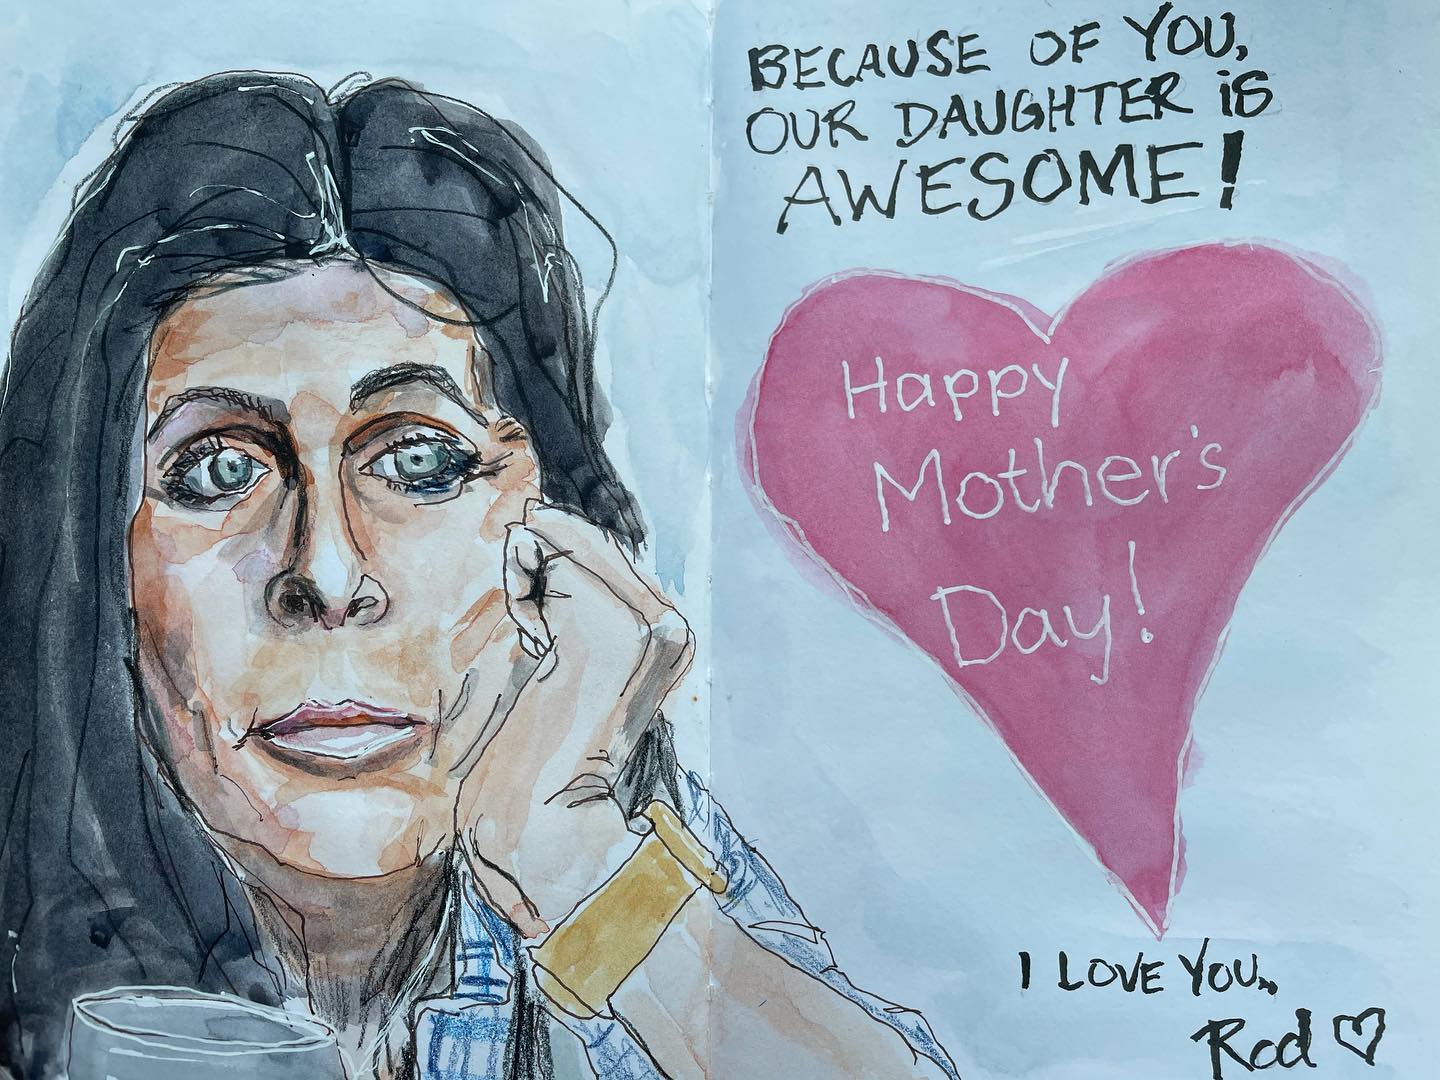 BECAUSE OF YOU,
OUR DAUGHTER iS
AWESOME!
Happy
Mother's
Day!
I LOVE YOU,,
Rod ♡